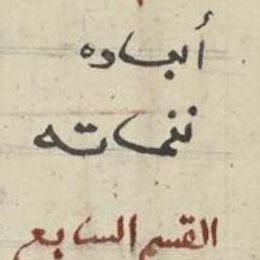 أبعاده
نغماته
القسم السابع